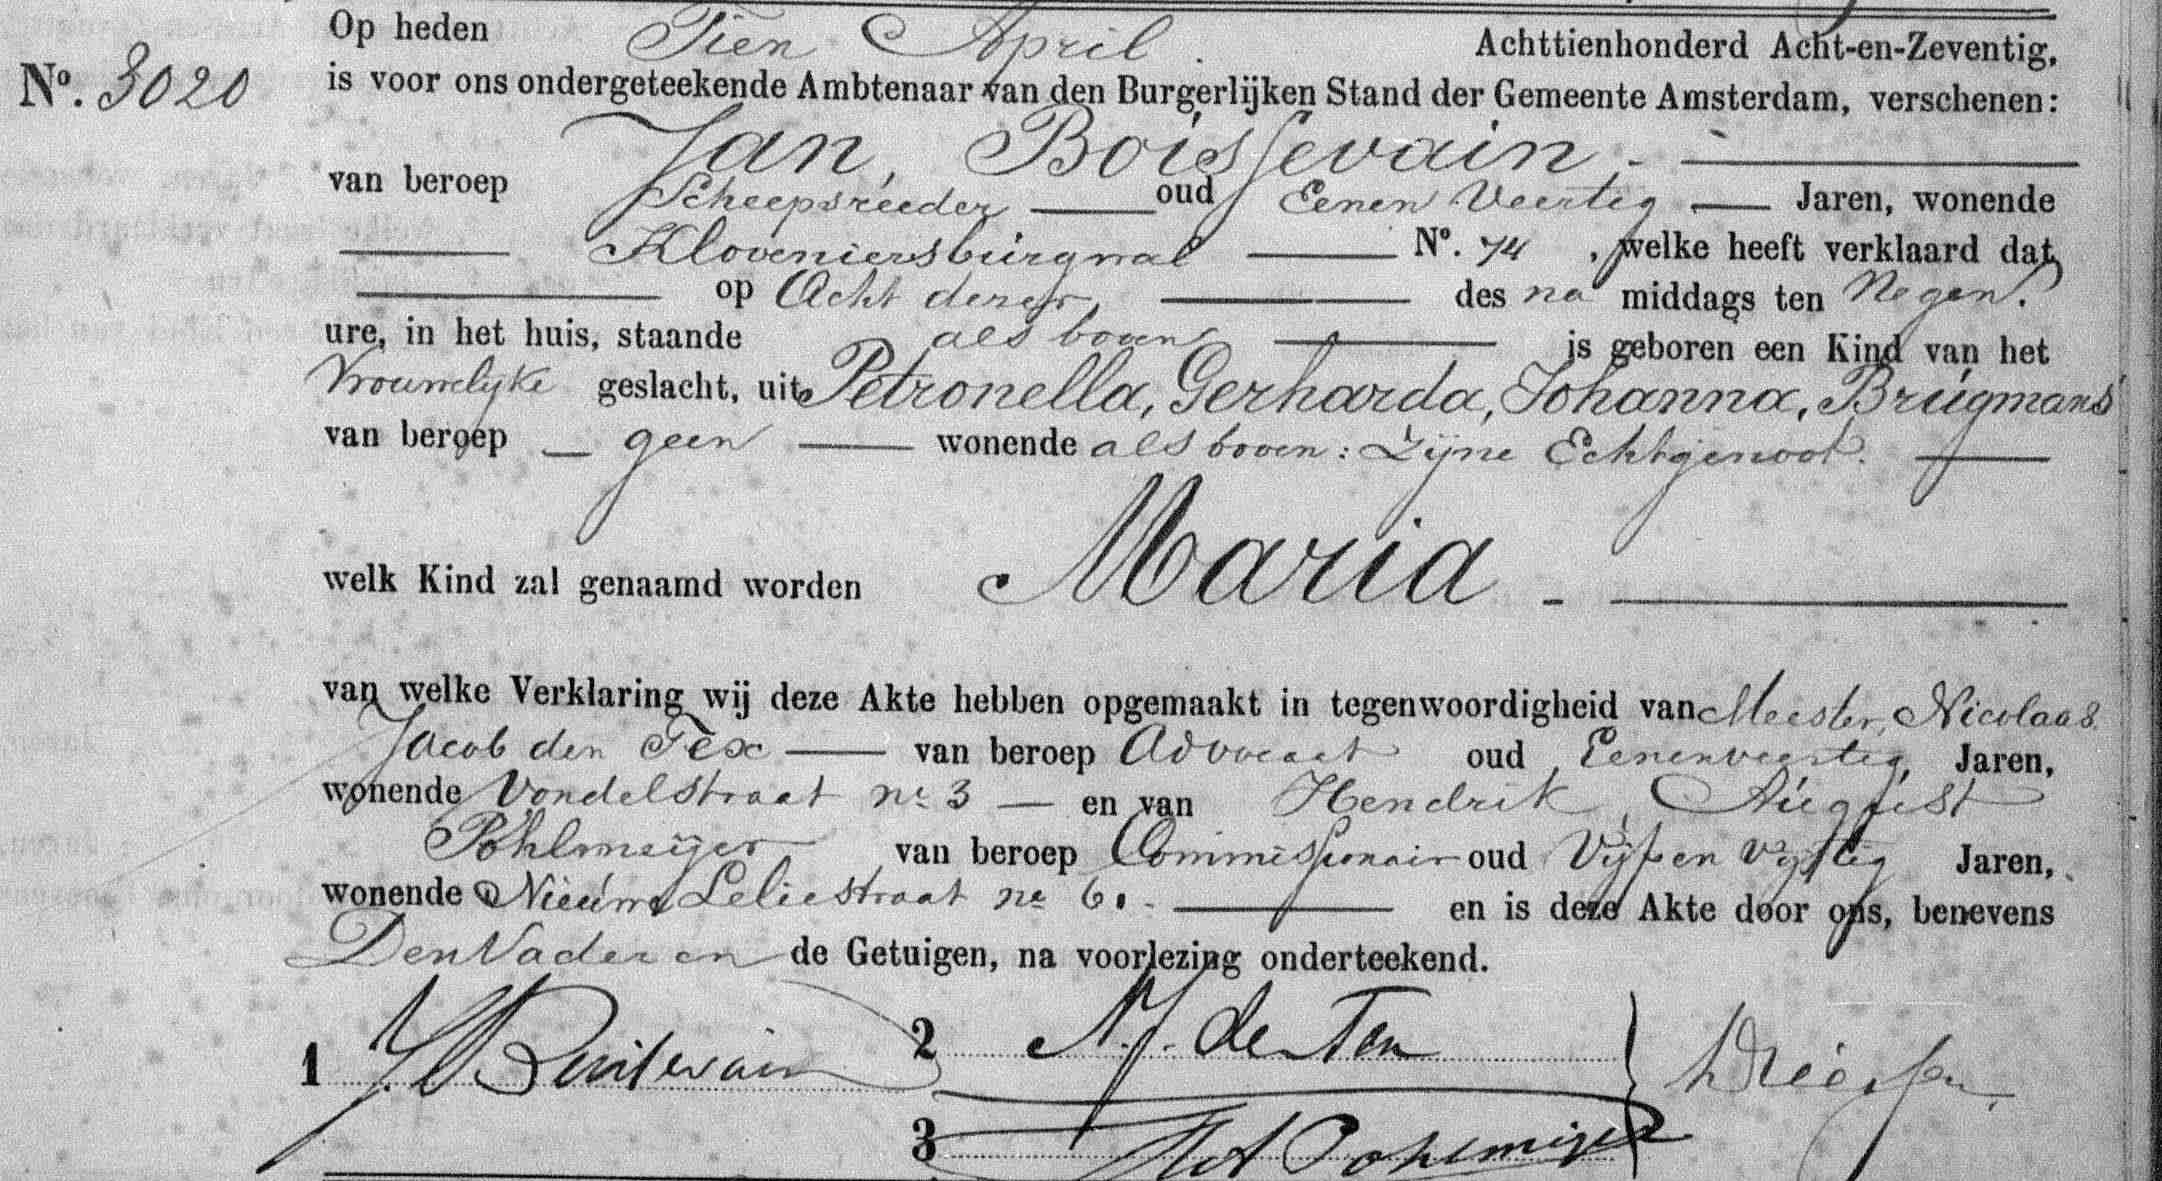 Op heden Tien April. Achttienhonderd Acht-en-Zeventig,
No. 3020
is voor ons ondergeteekende Ambtenaar van den Burgerlijken Stand der Gemeente Amsterdam, verschenen:
Jan, Boissevain, -
van beroep Scheepsreeder oud Eenen Veertig Jaren, wonende
Kloveniersburgwal No. 74, welke heeft verklaard dat
op Acht dezer, des na middags ten Negen.
ure, in het huis, staande als boven is geboren een Kind van het
Vrouwelijke geslacht, uit Petronella, Gerharda, Johanna, Brugmans
van beroep geen wonende als boven: Zijne Echtgenoot.
welk Kind zal genaamd worden Maria -
van welke Verklaring wij deze Akte hebben opgemaakt in tegenwoordigheid van Meester, Nicolaas
Jacob den Tex van beroep Advocaat oud Eenenveertig, Jaren,
wonende Vondelstraat no 3 en van Hendrik, August
Pohlmeijer van beroep Commissionair oud Vijf en Vijftig Jaren,
wonende Nieuwe Leliestraat no 61. en is deze Akte door ons, benevens
Den Vader en de Getuigen, na voorlezing onderteekend.
1 Boissevain 2 N.J. den Tex
3 HA Pohlmeijer